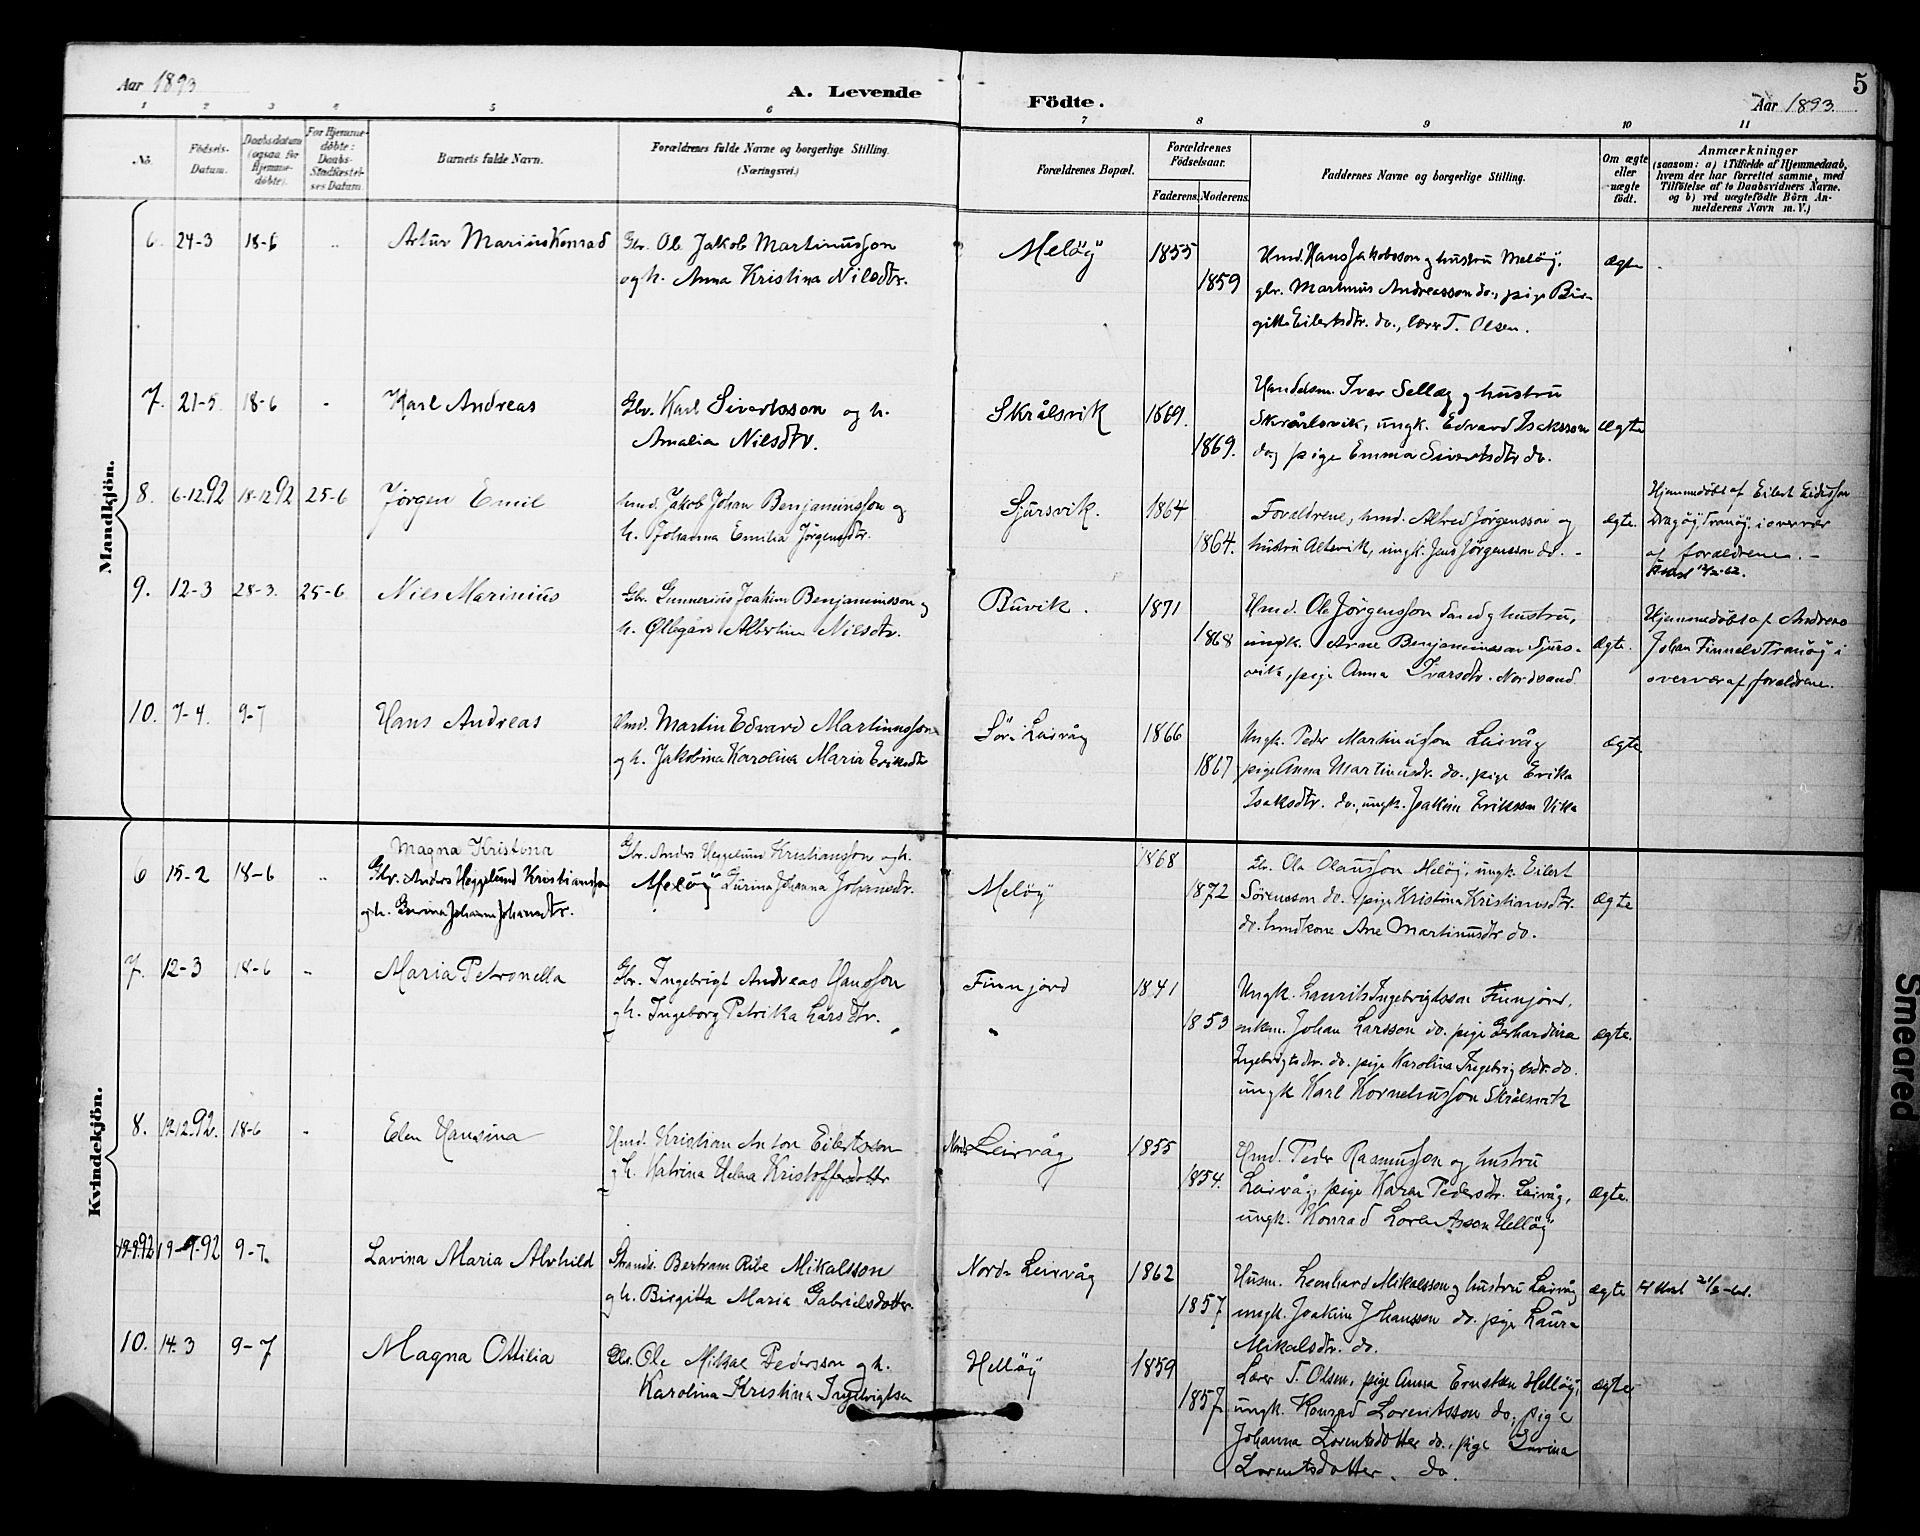 Aar 1893
A. Levende
Födte.
5
Aar 1893.
1 2 3 4 5 6 7 8 9 10 11
No.
Födsels-
Datum.
Daabsdatum
(ogsaa for
Hjemme-
döbte).
For Hjemme-
döbte:
Daabs-
Stadfæstel-
ses Datum.
Barnets fulde Navn.
Forældrenes fulde Navne og borgerlige Stilling.
(Næringsvei.)
Forældrenes Bopæl.
Forældrenes
Födselsaar.
Faderens. Moderens.
Faddernes Navne og borgerlige Stilling.
Om ægte
eller
uægte
født.
Anmærkninger
(saasom: a) i Tilfælde af Hjemmedaab,
hvem der har forrettet samme, med
Tilföielse af to Daabsvidners Navne.
og b) ved uægtefödte Börn An-
melderens Navn m. V.)
Mandkjön.
6. 24-3 18-6 " Artur Marius Konrad
Gbr. Ole Jakob Martinusson
og h. Anna Kristina Nilsdtr.
Melöy 1855 1859
Hmd. Hans Jakobsson og hustru Melöy,
gbr. Martinus Andreasson do., pige Bir-
gitte Eilertsdtr. do., lærer T. Olsen.
ægte
7. 21-5 18-6 - Karl Andreas
Gbr. Karl Sivertsson og h.
Amalia Nilsdtr.
Skrålsvik 1869. 1869.
Handelsm. Ivar Selläg og hustru
Skrålsvik, ungk. Edvard Isaksson
do, pige Emma Sivertsdtr do.
ægte
8. 6-12 92 18-12 92 25-6 Jørgen Emil
hmd. Jakob Johan Benjaminsson og
h. Johanna Emilia Jørgensdtr.
Sjursvik. 1864 1864.
Forældrene, hmd. Alfred Jørgensson og
hustru Altervik, ungk. Jens Jørgensson do. -
ægte.
Hjemmedøbt af Eilert Eidisson
Tranöy i overvær
af forældrene. -
9. 12-3 28-3. 25-6 Nils Marinius
Gbr. Gunnerius Joakim Benjaminsson og
h. Øllegård Albertine Nilsdtr.
Buvik. 1871 1868
Hmd. Ole Jørgensson Sand og hustru,
ungk. Arne Benjaminsson Sjurs-
vik, pige Anna Ivarsdtr. Nordsand
ægte.
Hjemmedøbt af Andreas
Johan Tranöy i
overvær af forældrene.
10. 7-4. 9-7 Hans Andreas
Hmd. Martin Edvard Martinusson
og h. Jakobina Karolina Maria Eriksdtr
Sör-Leirvåg 1866 1867
Ungk. Peder Martinusson Leirvåg
pige Anna Martinusdtr. do., pige Erika
Isaksdtr. do., ungk. Joakim Eriksson Vika
ægte
Kvindekjön.
6 15-2 18-6 " Magna Kristina
Gbr. Anders Heggelund Kristiansson
og h. Gurina Johanna Johansdtr.
Gbr. Anders Heggelund Kristiansson og h.
Melöy Gurina Johanna Johansdtr.
Melöy 1868 1872
Gbr. Ole Olausson Melöy, ungk. Eilert
Sörensson do. pige Kristina Kristiansdtr.
do. hmdkone Ane Martinusdtr do.
ægte
7. 12-3 18-6 - Maria Petronella
Gbr. Ingebrigt Andreas Hansson
og h. Ingeborg Petrika Larsdtr.
Finnjord 1841 1853
"
Ungk. Laurits Ingebrigtsson Finnjord,
enkem. Johan Larsson do. pige Gerhardina
Ingebrigtsdtr. do. pige Karolina Ingebrigtsdtr. do.
ungk Karl Kornelíusson Skrålsvik
ægte.
8. 12-92. 18-6 - Elen Hansina
Hmd. Kristian Anton Eilertsson
og h. Katrina Helena Kristoffersdotter
Nord-Leirvåg 1855 1854.
Hmd. Peder Rasmusson og hustru
Leirvåg, pige Karen Pedersdtr. Leirvåg,
ungk. Konrad Lorentsson Helløy
ægte.
19-9.92 19-9-92 9-7. Lavina Maria Alvhild
Strands. Bertram Ribe Mikalsson
og h. Birgitta Maria Gabrielsdotter
Nord-Leirvåg 1862 1857
Husm. Leonhard Mikalsson og hustru Leirvåg
ungk. Joakim Johansson do. pige Laura
Mikalsdtr. do.
ægte
10. 14-3 9-7 Magna Ottilia
Gbr. Ole Mikal Pedersson og h.
Karolina Kristina Ingebrigtsen
Helløy 1859 1857
Lærer T. Olsen, pige Anna Ernstsen Helløy,
ungk. Konrad Lorentsson do, pige
Johanna Lorentsdotter do., pige Lavina
Lorentsdotter. do.
ægte
Smeared